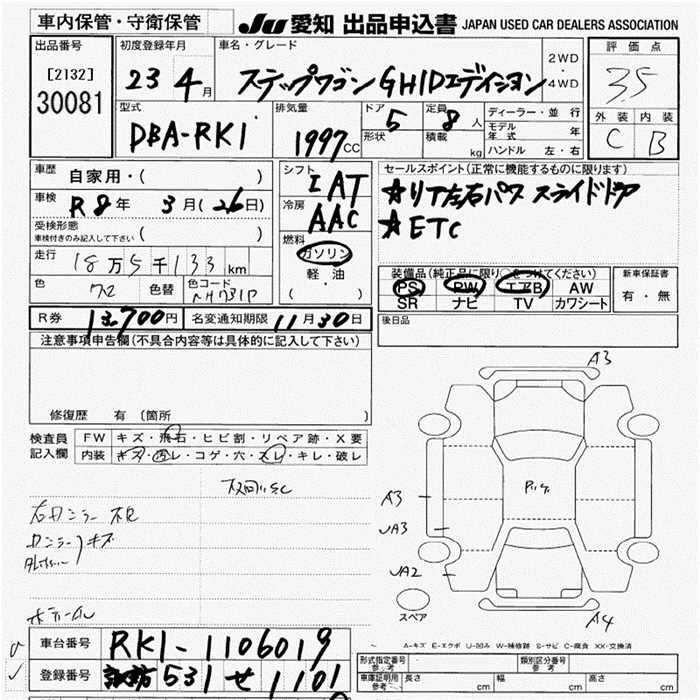 車内保管・守衛保管
JU 愛知 出品申込書 JAPAN USED CAR DEALERS ASSOCIATION
出品番号
[2132]
30081
初度登録年月
23 4月
車名・グレード
ステップワゴン GHIDエディション
2WD
・
4WD
評価点
3.5
外装 内装
C B
型式
DBA-RK1
排気量
1997CC
ドア 5
形状
定員 8人
積載 kg
ディーラー・並行
モデル年式 年
ハンドル 左・右
車歴
自家用・( )
車検
R8年 3月(26日)
受検形態
車検付きのみ記入して下さい ( )
走行
18万5千133km
色
色替
色コード
NH731P
シフト
IAT
冷房
AAC
燃料
ガソリン
軽油
( ・ )
セールスポイント(正常に機能するものに限ります)
★リア左右パワスライドドア
★ETC
装備品(純正品に限り○をつけてください)
PS PW エアB AW
SR ナビ TV カワシート
新車保証書
有・無
R券 13,700円 名変通知期限 11月30日
後日品
注意事項申告欄(不具合内容等は具体的に記入して下さい)
修復歴 有 〔箇所 〕
検査員記入欄
FW キズ・飛石・ヒビ割・リペア跡・X要
内装 キズ・汚レ・コゲ・穴・スレ・キレ・破レ
A3
A3
UA3
UA2
スペア
A4
A-キズ E-エクボ U-凹み W-補修跡 S-サビ C-腐食 XX-交換済
車台番号 RK1-1106019
登録番号 諏訪 531 せ 1101
形式指定番号 参考
類別区分番号 参考
車庫証明用 参考 長さ cm 幅 cm 高さ cm